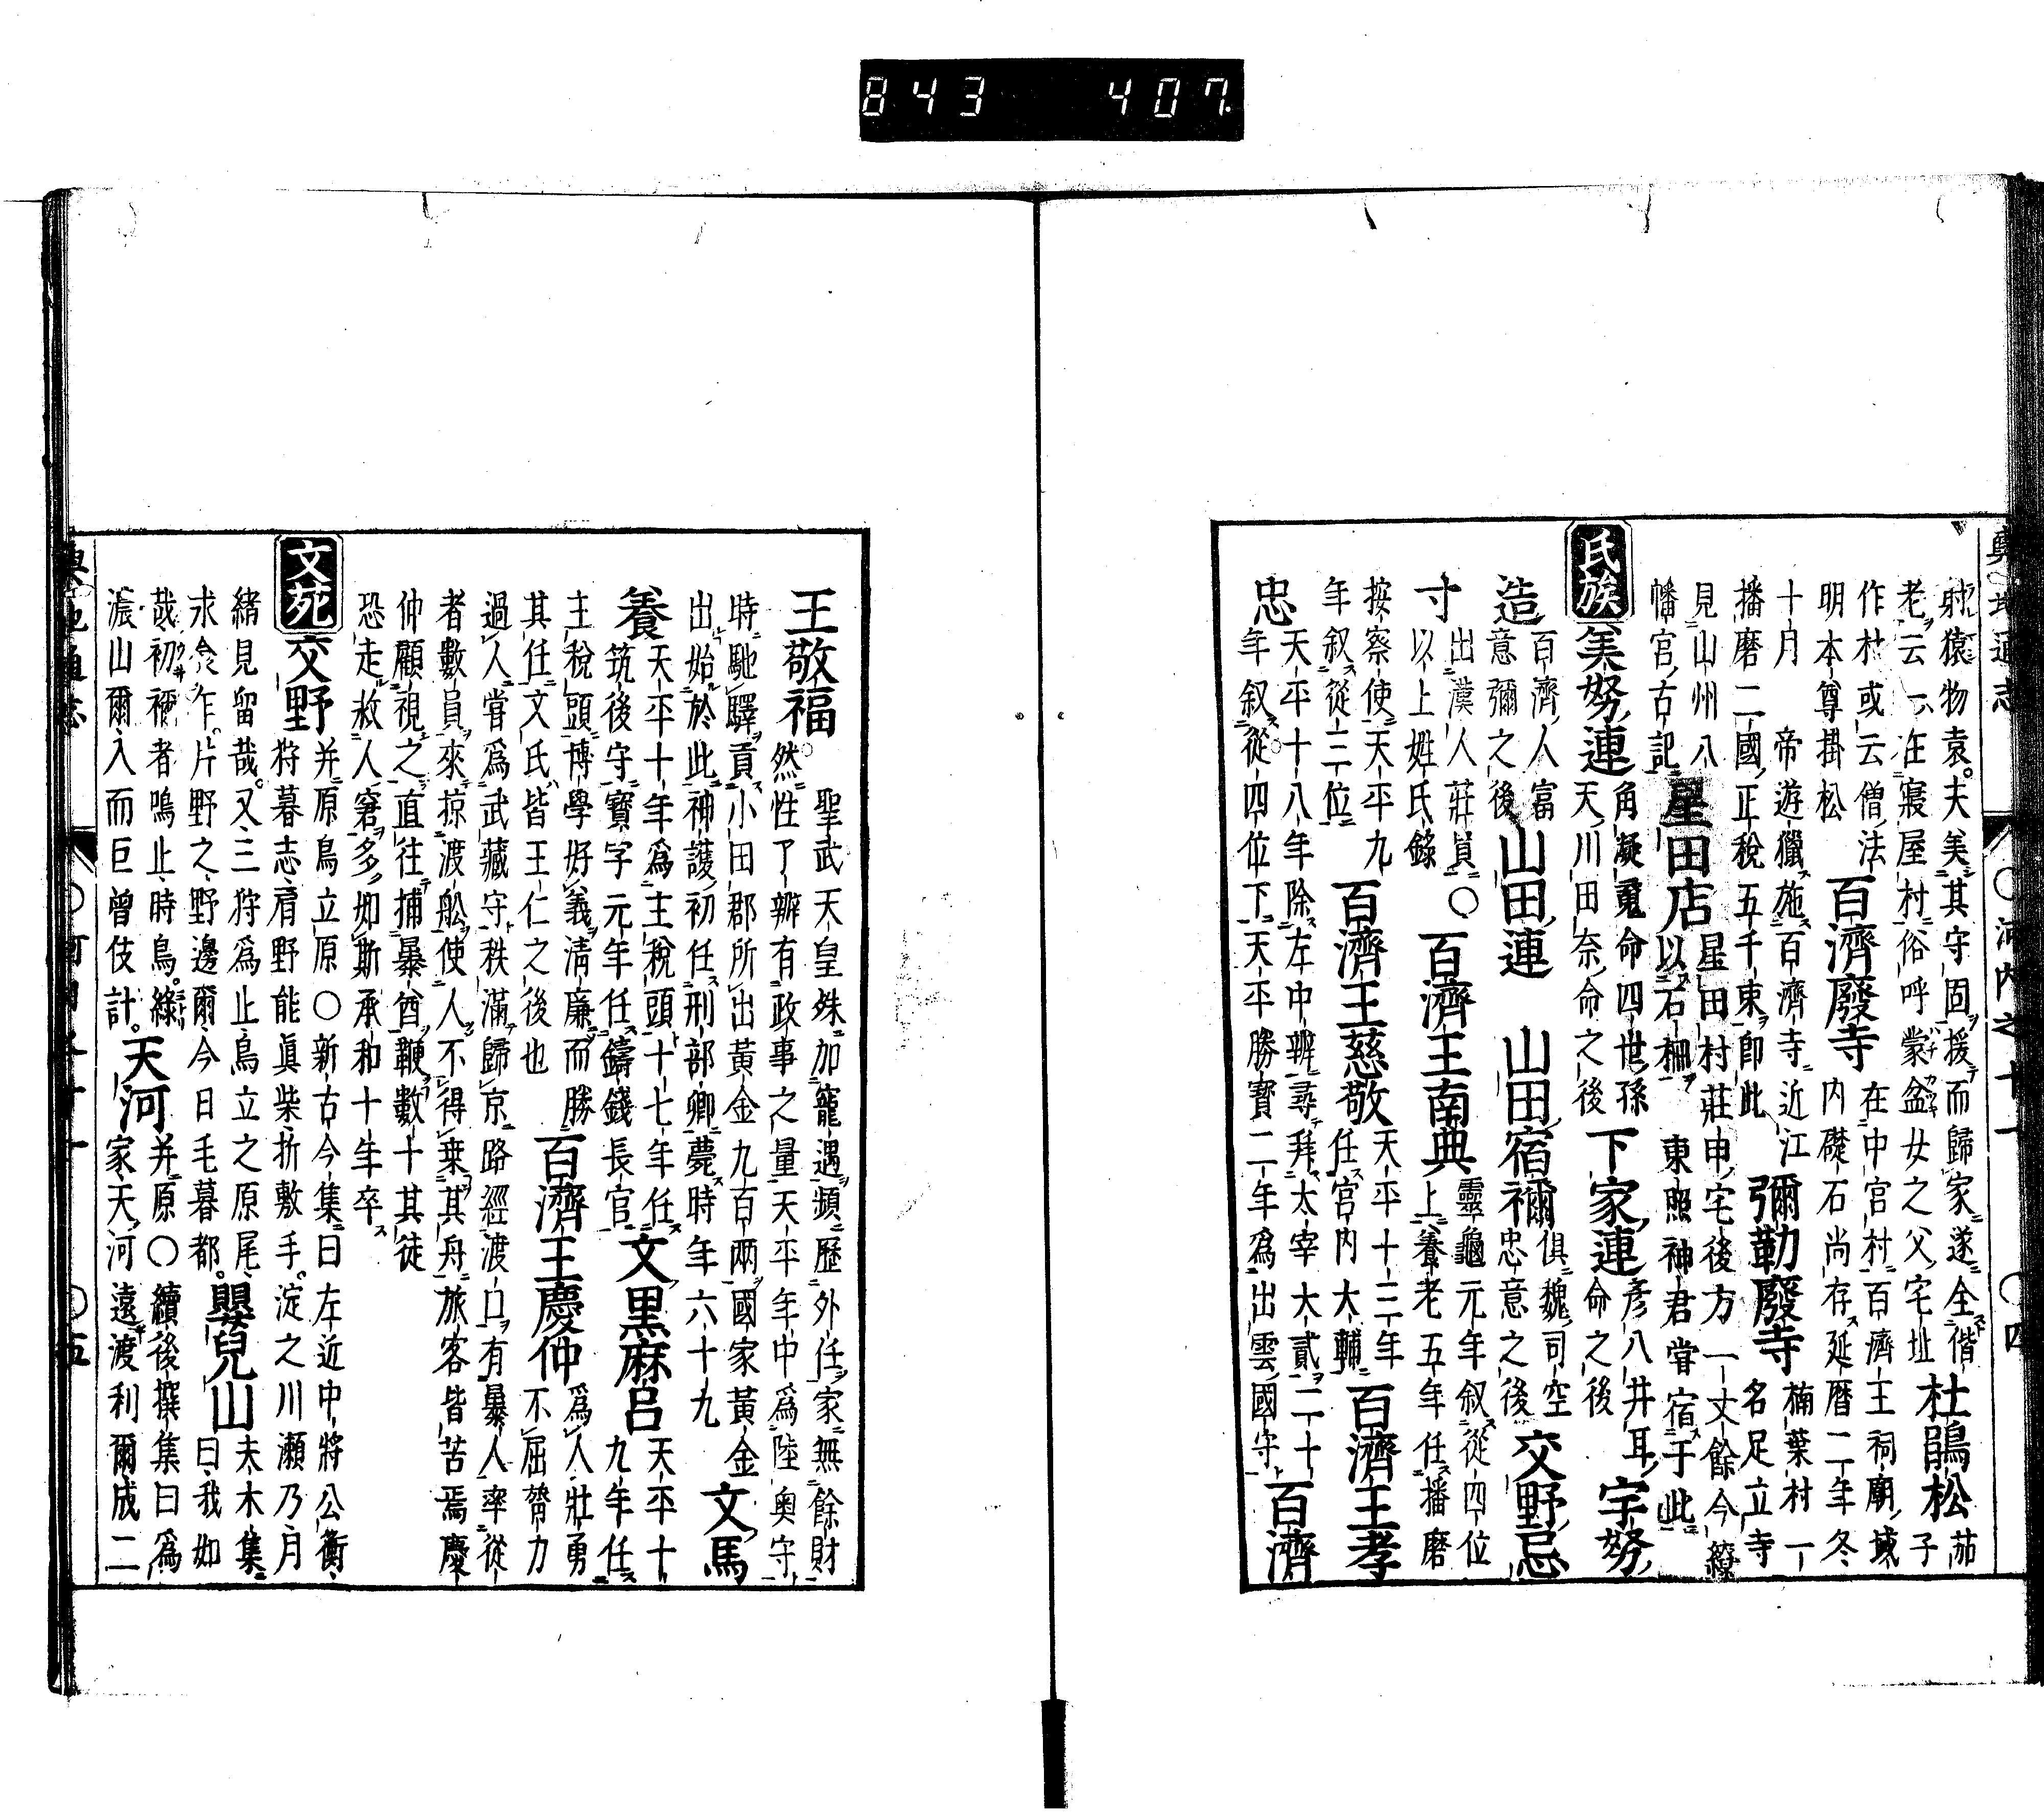 843 407
輿地通志 ○河内之十一 ○四
猿物袁夫美其守固援而歸家遂全偕 杜鵑松 茄子
老云一在寢屋村俗呼蒙盆女之父宅址
作杜或云僧法
明本尊掛松 百濟廢寺 在中宮村百濟王祠廟域
内礎石尚存延暦二年冬
十月 帝遊獵施百濟寺近江
播磨二國正税五千束即此 彌勒廢寺 楠葉村一
名足立寺
見山州八
幡宮古記 星田店 星田村莊申宅後方一丈餘今繚
以石柵 東照神君甞宿于此
氏族 美努連 角凝魂命四世孫
天川田奈命之後 下家連 彦八井耳
命之後 宇努
造 百濟人富
意彌之後 山田連 山田宿禰 倶魏司空
忠意之後 交野忌
寸 出漢人莊員○
以上姓氏錄 百濟王南典 靈龜元年叙從四位
上養老五年任播磨
按察使天平九
年叙從三位 百濟王慈敬 天平十三年
任宮内大輔 百濟王孝
忠 天平十八年除左中辨尋拜太宰大貳二十
年叙從四位下天平勝寶二年為出雲國守 百濟
王敬福 聖武天皇殊加寵遇頻歴外任家無餘財
然性了辨有政事之量天平年中爲陸奥守
時馳驛貢小田郡所出黄金九百兩國家黄金
出始於此神護初任刑部卿薨時年六十九 文馬
養 天平十年爲主税頭十七年任
筑後守寶字元年任鑄錢長官 文黒麻呂 天平十
九年任
主税頭博學好義清廉而勝
其任文氏皆王仁之後也 百濟王慶仲 爲人壯勇
不屈膂力
過人嘗爲武藏守秩滿歸京路經渡口有暴人率從
者數員來掠渡舩使人不得乗其舟旅客皆苦焉慶
仲顧視之直往捕暴酋鞭數十其徒
恐走救人窘多如斯承和十年卒
文苑 交野 并原鳥立原○新古今集曰左近中將公衡
狩暮志肩野能眞柴折敷手淀之川瀬乃月
緒見留哉又三狩爲止鳥立之原尾 夫木集
求食乍片野之野邊爾今日毛暮都 嬰兒山 曰我如
哉初禰者鳴止時鳥綠 天河 并原○續後撰集曰爲
家天河遠渡利爾成二
濃山爾入而巨曾伎計
輿地通志 ○河内之十一 ○五